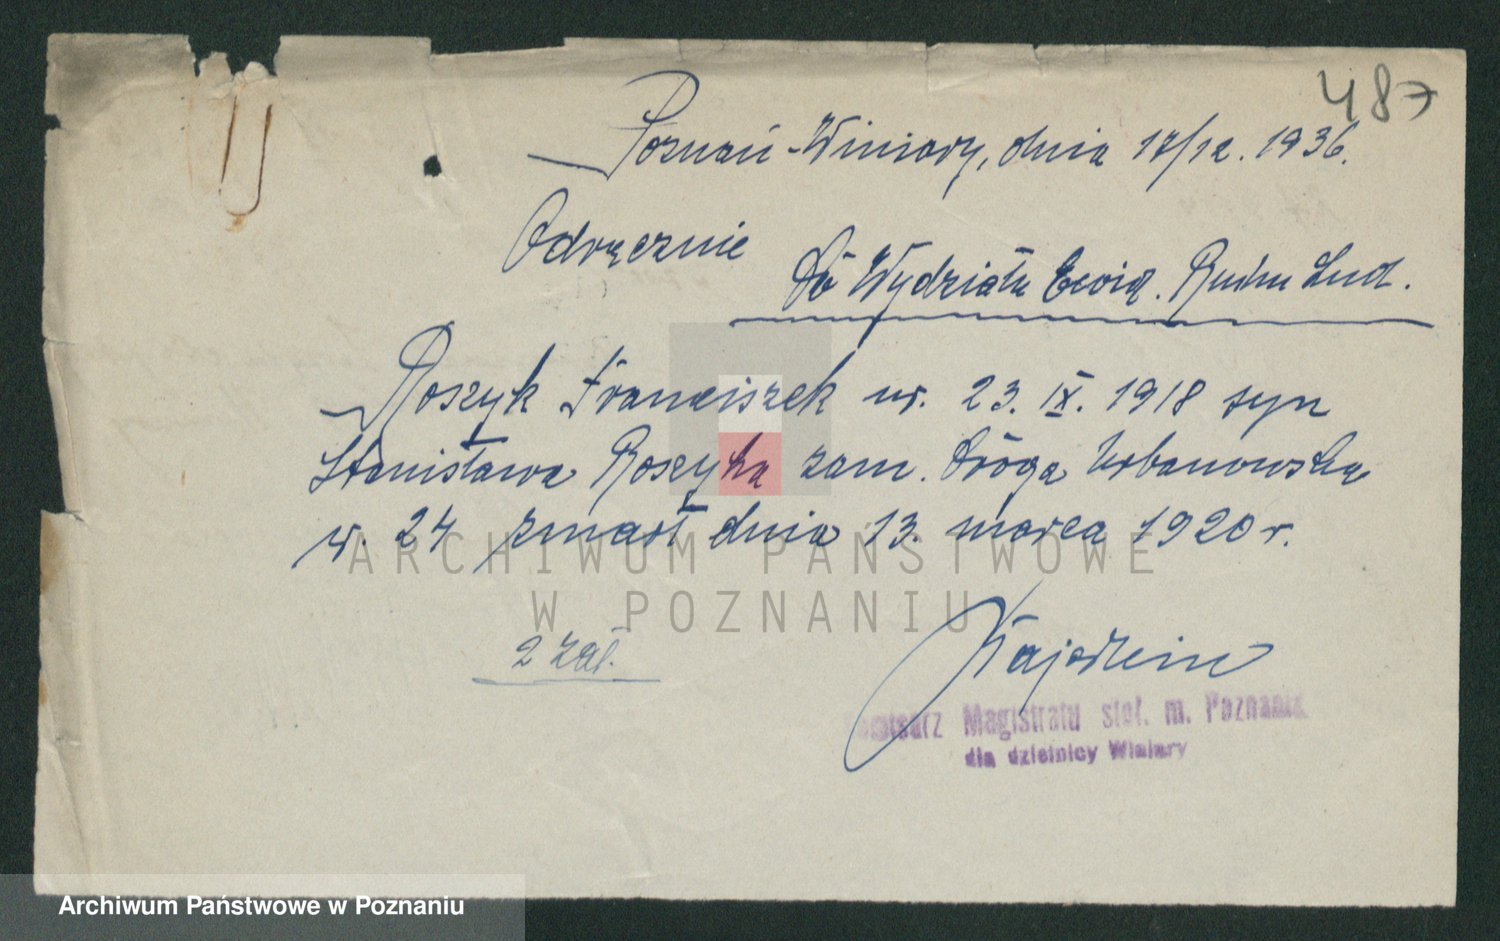 487
Poznań-Winiary, dnia 17/12. 1936.
Odręcznie
Do Wydziału Ewid. Ruchu Lud.
Roszyk Franciszek ur. 23. IX. 1918 syn
Stanisława Roszyka zam. Droga Urbanowska
nr. 24 zmarł dnia 13. marca 1920 r.
ARCHIWUM PAŃSTWOWE
W POZNANIU
2 zał.
Komisarz Magistratu stoł. m. Poznania
dla dzielnicy Winiary
Archiwum Państwowe w Poznaniu